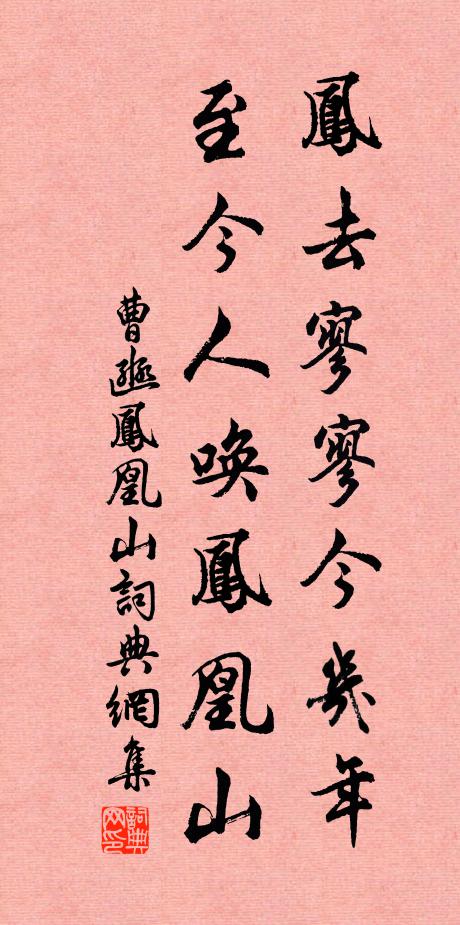 鳳去寥寥今幾年
至今人喚鳳凰山
曹鳳凰山詞典網集
詞典网印